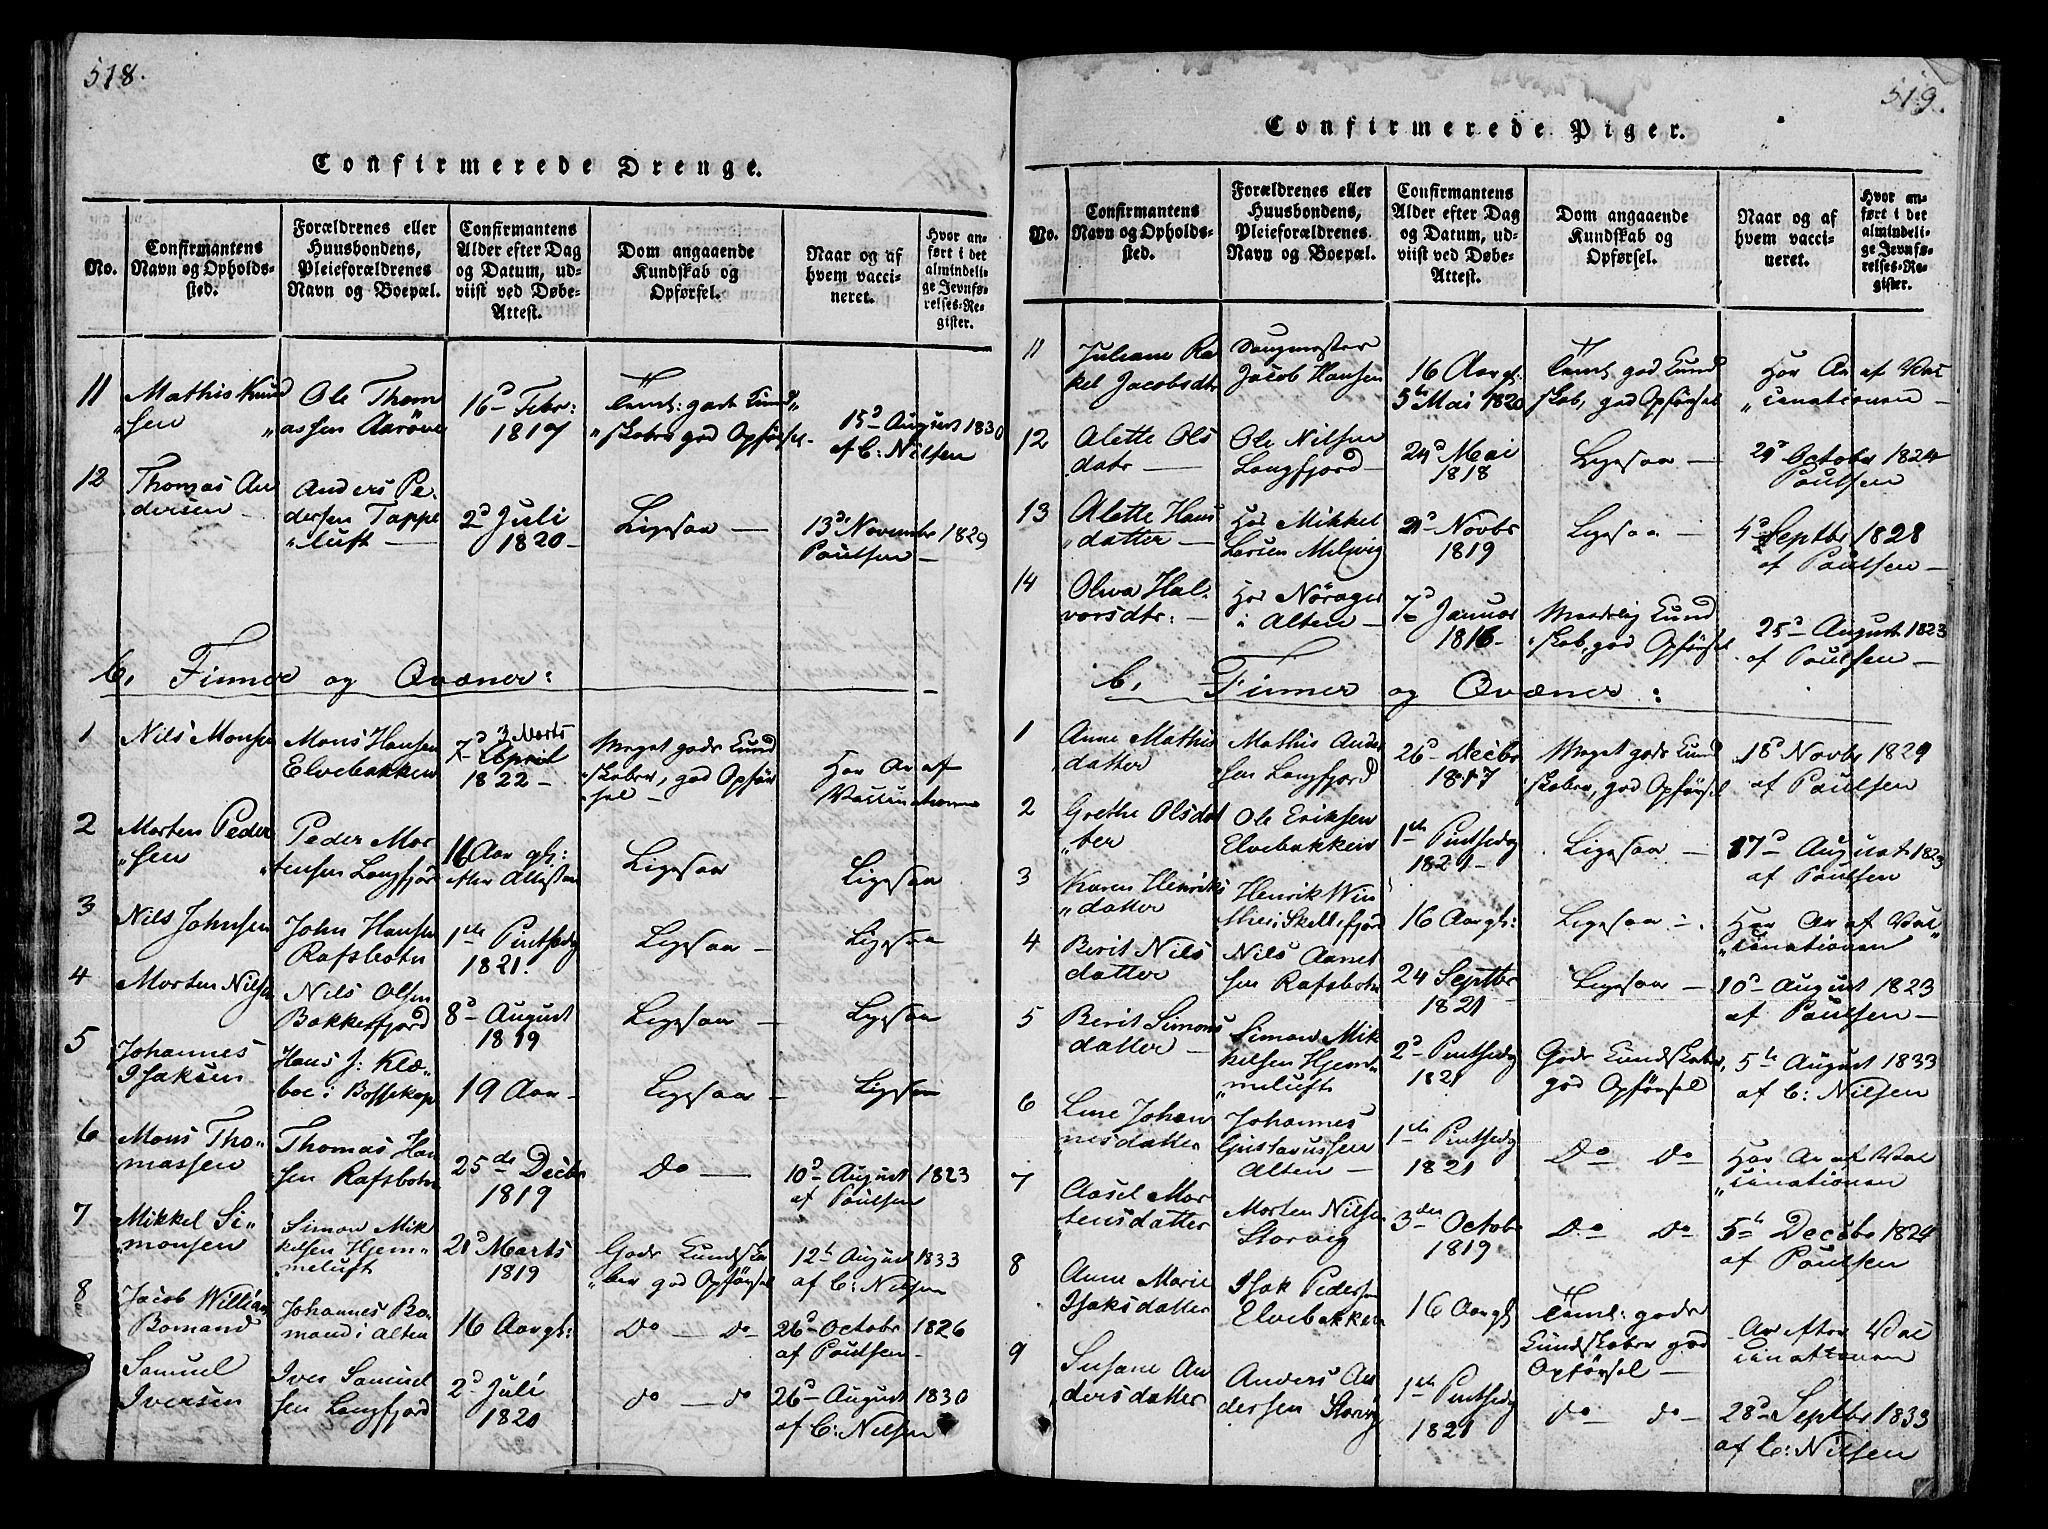 518.
Confirmerede Drenge.
No.
Confirmantens
Navn og Opholds-
sted.
Forældrenes eller
Huusbondens,
Pleieforældrenes
Navn og Boepæl.
Confirmantens
Alder efter Dag
og Datum, ud-
viist ved Døbe-
Attest.
Dom angaaende
Kundskab og
Opførsel.
Naar og af
hvem vacci-
neret.
Hvor an-
ført i det
almindeli-
ge Jevnfø-
relses-Re-
gister.
11
Mathis Knud
"sen
Ole Thom
assen Aarøve
16d Febr:
1817
Teml: gode Kund"
"skaber god Opførsel.
15d August 1830
af C: Nilsen
12
Thomas An
dersen
Anders Pe-
dersen Tappe
"luft
2d Juli
1820
Ligesaa
13d November 1829
Poulsen
b, Finner og Qvæner:
1
Nils Monsen
Mons Hansen
Elvebakken
7d April
3 Marts
1822
Meget gode Kund
"skaber, god Opfør
"sel
Har Ar af
Vaccinationen
2
Morten Peder
"sen
Peder Mor
"tensen Langfjord
16 Aar gl:
efter Attesten
Ligesaa
Ligesaa
3
Nils Johnsen
John Hansen
Rafsbotn
1ste Pintsedag
1821.
Ligesaa
Ligesaa
4
Morten Nilsen
Nils Olsen
Bokkefjord
8d August
1819
Ligesaa
Ligesaa
5
Johannes
Isaksen
Hans J: Klæ-
boe i Bossekop
19 Aar
Ligesaa
Ligesaa
6
Mons Tho-
massen
Thomas Han
sen Rafsbotn
25de Decbr
1819
Do
10d August 1823
af Poulsen
7
Mikkel Si-
monsen
Simon Mik
kelsen Hjem-
"meluft
21d Marts
1819
Gode Kundska
"ber god Opførsel
12t August 1833
af C: Nilsen
8
Jacob William
Bomand
Johannes Bo-
mand i Alten
16 Aar gl:
Do Do
26d Octobr 1826
af Poulsen
Samuel
Iversen
Iver Samuel
sen Langfjord
2d Juli
1820
do do
26d August 1830
af C: Nilsen
519.
Confirmerede Piger.
No.
Confirmantens
Navn og Opholds-
sted.
Forældrenes eller
Huusbondens,
Pleieforældrenes
Navn og Boepæl.
Confirmantens
Alder efter Dag
og Datum, ud-
viist ved Døbe-
Attest.
Dom angaaende
Kundskab og
Opførsel.
Naar og af
hvem vacci-
neret.
Hvor an-
ført i det
almindeli-
ge Jevnfø-
relses-Re-
gister.
11
Juliane Ra
kel Jacobsdtr
Jacob Hansen
16 Aar gl.
5te Mai 1820
Teml: god Kund
skab, god Opførsel
Har Ar af Vac
"cinationen
12
Alette Ols
datr
Ole Nilsen
Langfjord
24d Mai
1818
Ligesaa
29d October 1824
Poulsen
13
Alette Hans
"datter
Hos Mikkel
Larsen Melsvig
21d Novbr
1819
Ligesaa
4d Septbr 1828
af Poulsen
14
Olava Hal-
vorsdtr:
Hos Norager
i Alten
7d Januar
1816
Maadelig Kund
"skab, god Opførsel
25d August 1823
af Poulsen
b, Finner og Qvæner:
1
Anne Mathis
datter
Mathis Ander
sen Langfjord
26d Decbr
1817
Meget gode Kund
"skaber, god Opførsel
18d Novbr 1829
af Poulsen
2
Grethe Olsdat
"ter
Ole Eriksen
Elvebakken
1ste Pintsedag
1821
Ligesaa
17d August 1823
af Poulsen
3
Karen Henriks
"datter
Henrik Win
ther i Skillefjord
16 Aar gl:
Ligesaa
Har Ar af Vac"
"cinationen
4
Berit Nils
datter
Nils Aanet
sen Rafsbotn
24 Septbr
1821
Ligesaa
10d August 1823
af Poulsen
5
Berit Simons
datter
Simon Mik
kelsen Hjem-
"meluft
2d Pintsedag
1821
Gode Kundskaber,
god Opførsel
5te August 1833
af C: Nilsen
6
Line Johan
nesdatter
Johannes
Gustavussen
Alten
1ste Pintsedag
1821
Do Do
Har Ar af Vac
"cinationen
7
Aasel Mor
tensdatter
Morten Nilsen
Storvig
3die Octobr
1819
Do Do
5te Decbr 1824
af Poulsen
8
Anne Marie
Isaksdatter
Isak Pedersen
Elvebakken
16 Aar gl
Teml: gode
Kundskaber god
Opførsel
Ar efter Vac
cinationen
9
Susane An
dersdatter
Anders An
dersen Storvig
1ste Pintsedag
1821
do do
28d Septbr 1833
af C: Nilsen